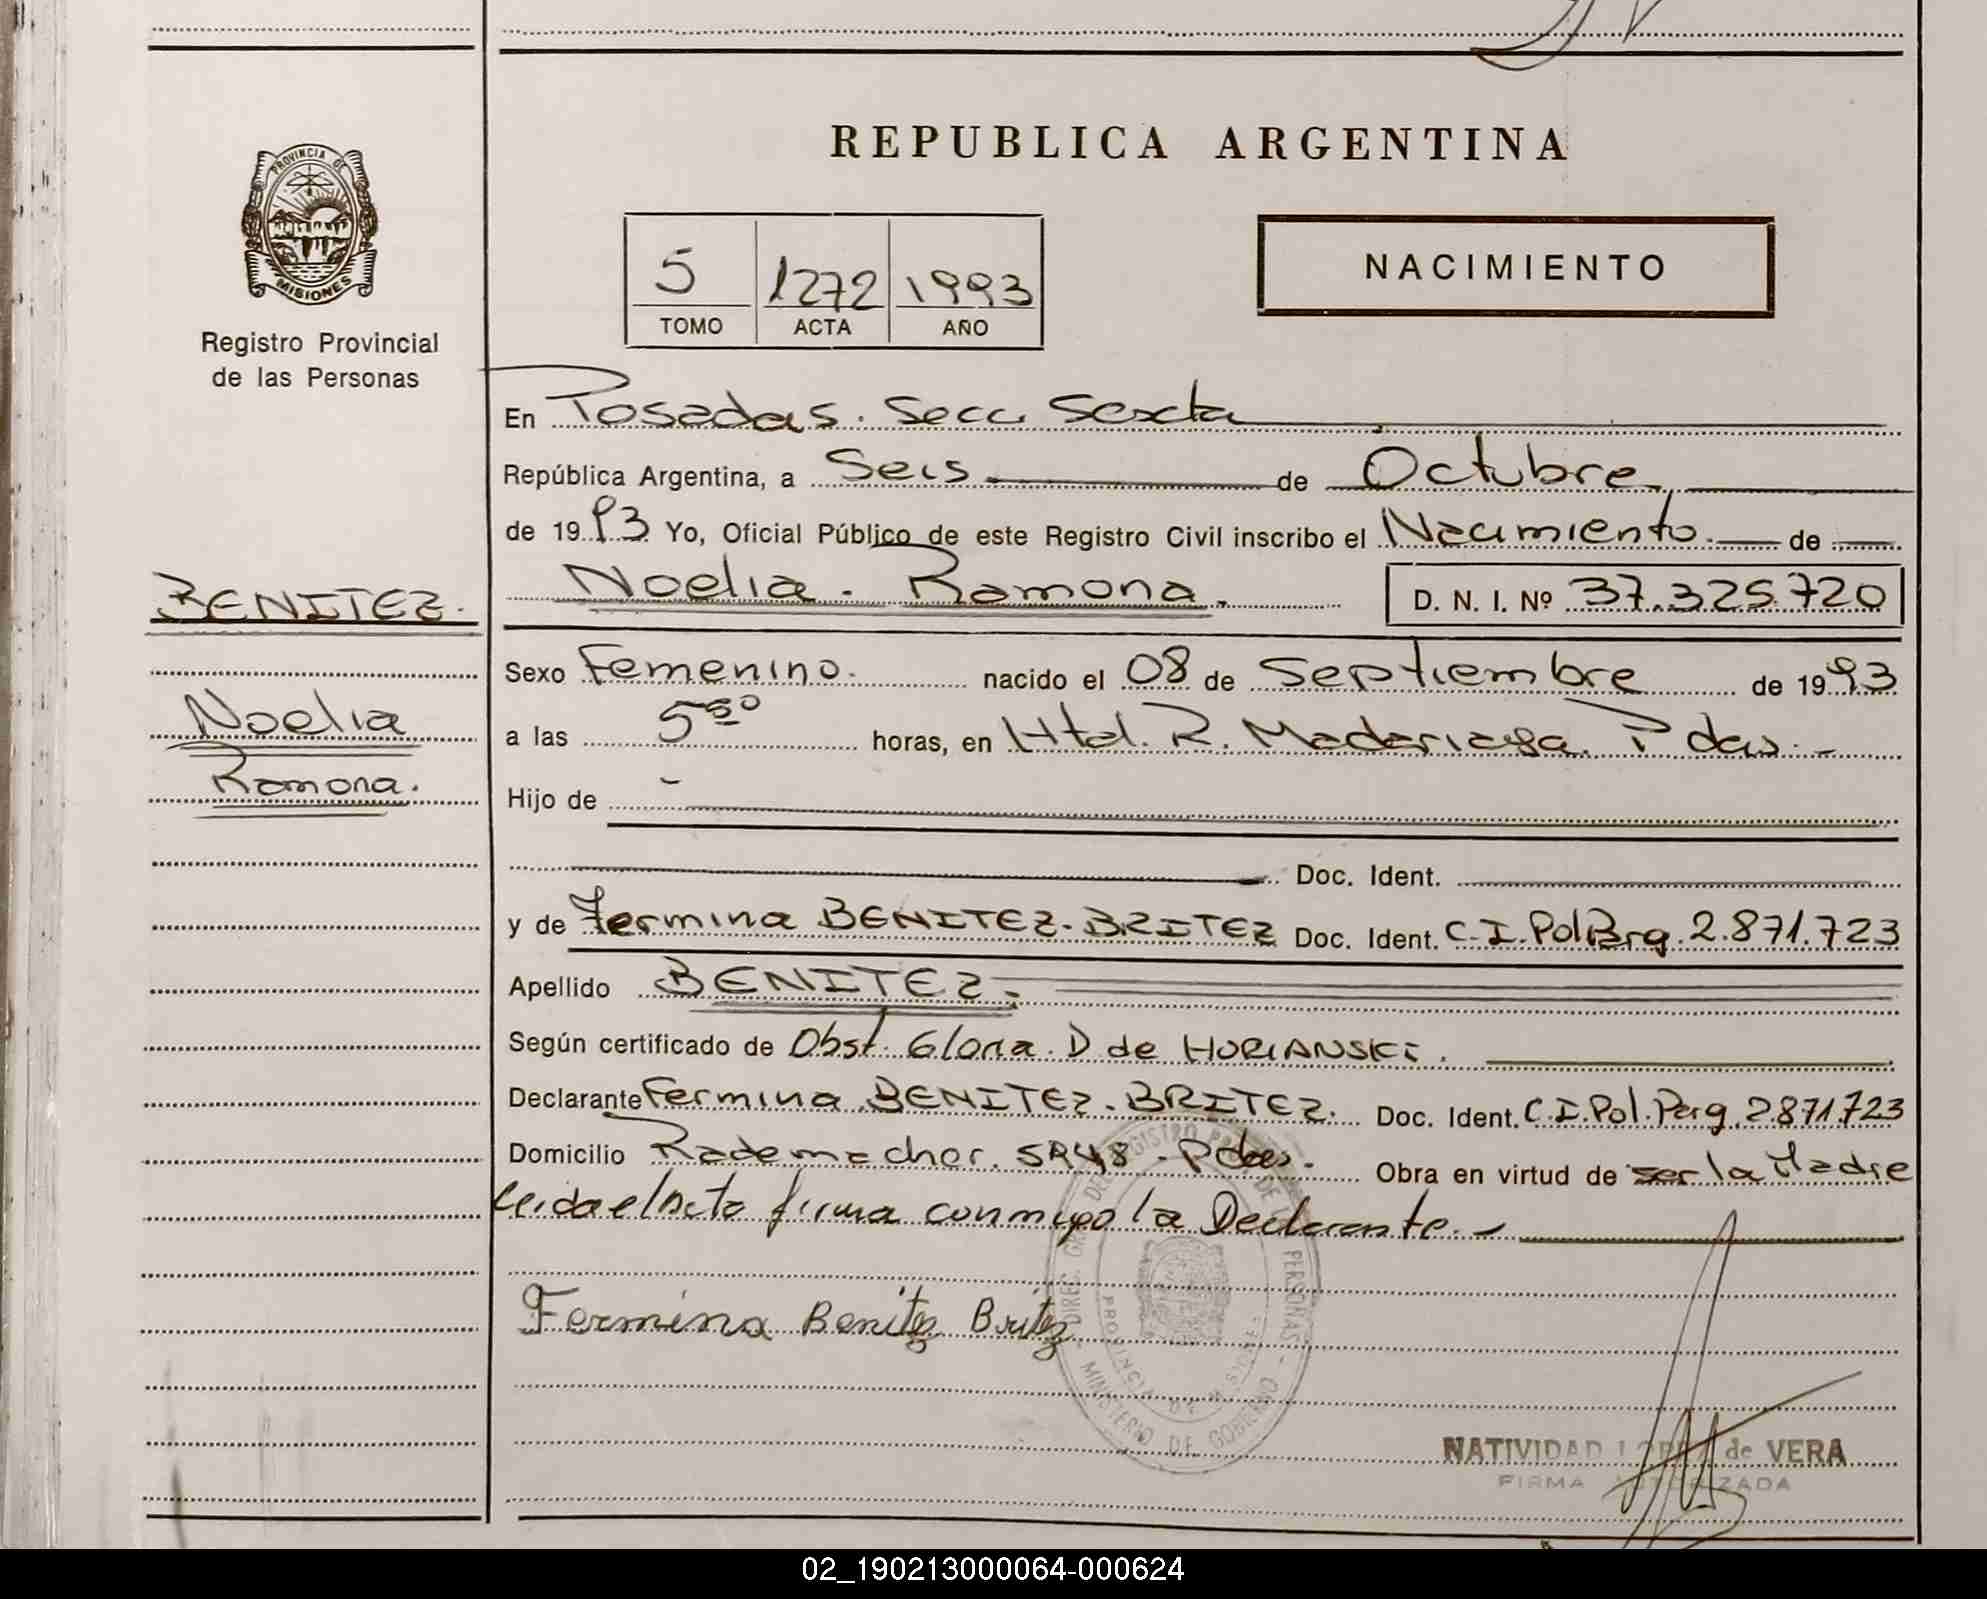 REPUBLICA ARGENTINA
PROVINCIA DE MISIONES
Registro Provincial
de las Personas
5 1272 1993
TOMO ACTA AÑO
NACIMIENTO
En Posadas. Secc. Sexta
República Argentina, a Seis de Octubre
de 1993 Yo, Oficial Público de este Registro Civil inscribo el Nacimiento de
BENITEZ.
Noelia Ramona. D. N. I. Nº 37.325.720
Sexo Femenino. nacido el 08 de Septiembre de 1993
Noelia
Ramona.
a las 5 30 horas, en Htal. R. Madariaga. Pdas.
Hijo de
Doc. Ident.
y de Fermina BENITEZ-BRITEZ Doc. Ident. C.I.Pol Prg. 2.871.723
Apellido BENITEZ.
Según certificado de Obst. Gloria. D de HORIANSKI.
Declarante Fermina BENITEZ-BRITEZ. Doc. Ident. C.I.Pol.Parg. 2871723
Domicilio Rademacher. 5848. Pdas. Obra en virtud de ser la Madre
leida el Acta firma conmigo la Declarante.
Fermina Benitez Britez
MINISTERIO DE GOBIERNO
PROVINCIA DE MISIONES
NATIVIDAD LOPEZ de VERA
FIRMA AUTORIZADA
02_190213000064-000624